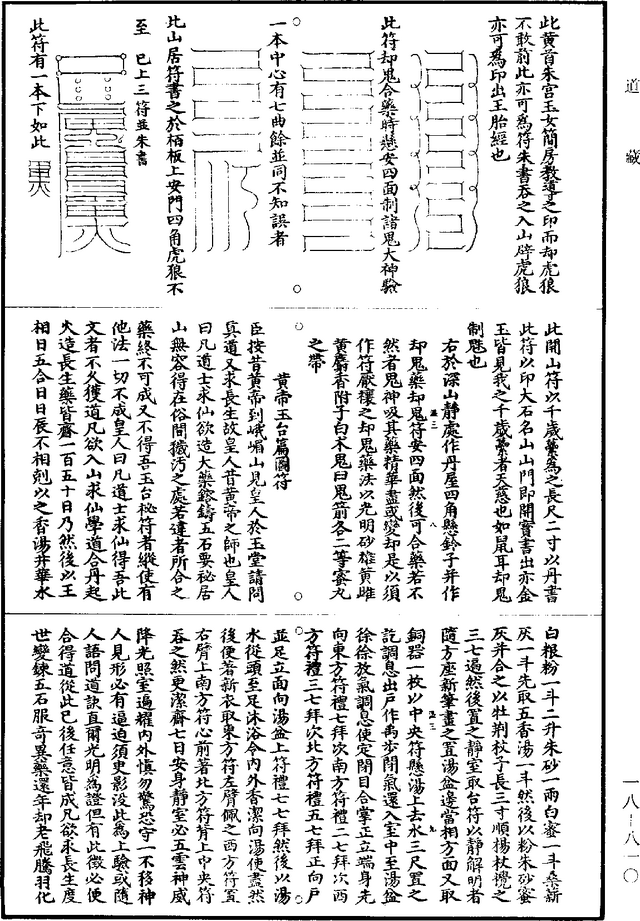 道藏
此黄首朱宮玉女簡房教導之印而却虎狼
不敢前此亦可爲符朱書吞之入山辟虎狼
亦可爲印出玉胎經也
此符却鬼合藥時懸安四面制諸鬼大神驗
一本中心有七曲餘並同不知誤者
此山居符書之於栢板上安門四角虎狼不
至 已上三符並朱書
此符有一本下如此
此開山符以千歲蔂爲之長尺二寸以丹書
此符以印大石名山山門即開寶書出亦金
玉皆見我之千歲蔂者天慈也如鼠耳却鬼
制魅也
右於深山靜處作丹屋四角懸鈴子并作
却鬼藥却鬼符安四面然後可合藥若不
然者鬼神吸其藥精華盡或變却是以須
作符厭禳之却鬼藥法以光明砂雄黄雌
黄麝香附子白术鬼臼鬼箭各二等蜜丸
之帶
黄帝玉台篇圖符
臣按昔黄帝到峨嵋山見皇人於玉堂請問
真道又求長生故皇人昔黄帝之師也皇人
曰凡道士求仙欲造大藥鎔鑄五石要祕居
山無容得在俗間穢汚之處若違者所合之
藥終不可成又不得吾玉台秘符者縱使有
他法一切不成皇人曰凡道士求仙得吾此
文者不久獲道凡欲入山求仙學道合丹起
火造長生藥皆齋一百五十日乃然後以王
相日五合日日辰不相剋以之香湯井華水
白根粉一斗二升朱砂一兩白蜜一斗桑新
灰一斗先取五香湯一斗然後以粉朱砂蜜
灰并合之以牡荆杖子長三寸順楊杖攪之
三七遍然後置之靜室取台符以靜解明者
隨方座新筆畫之置湯盆邊當相方面又取
銅器一枚以中央符懸湯上去水三尺置之
訖調息出戶作禹步閉氣還入室中至湯盆
徐徐放氣調息使定閉目合掌正立端身先
向東方符禮七拜次南方符禮二七拜次西
方符禮三七拜次北方符禮五七拜正向戶
並足立面向湯盆上符禮七七拜然後以湯
水從頭至足沐浴令內外香潔向湯使盡然
後便著新衣取東方符左臂佩之西方符置
右臂上南方符心前著北方符背上中央符
吞之然更潔齋七日安身靜室必五雲神威
降光照室遍耀内外慎勿驚恐守一不移神
人見形必有逼迫須更影没此爲上驗或隨
人語問道訣直爾光明爲證但有此徵必便
合得道從此已後任意皆成凡欲求長生度
世變鍊五石服奇異藥還年却老飛騰羽化
一八－八一〇